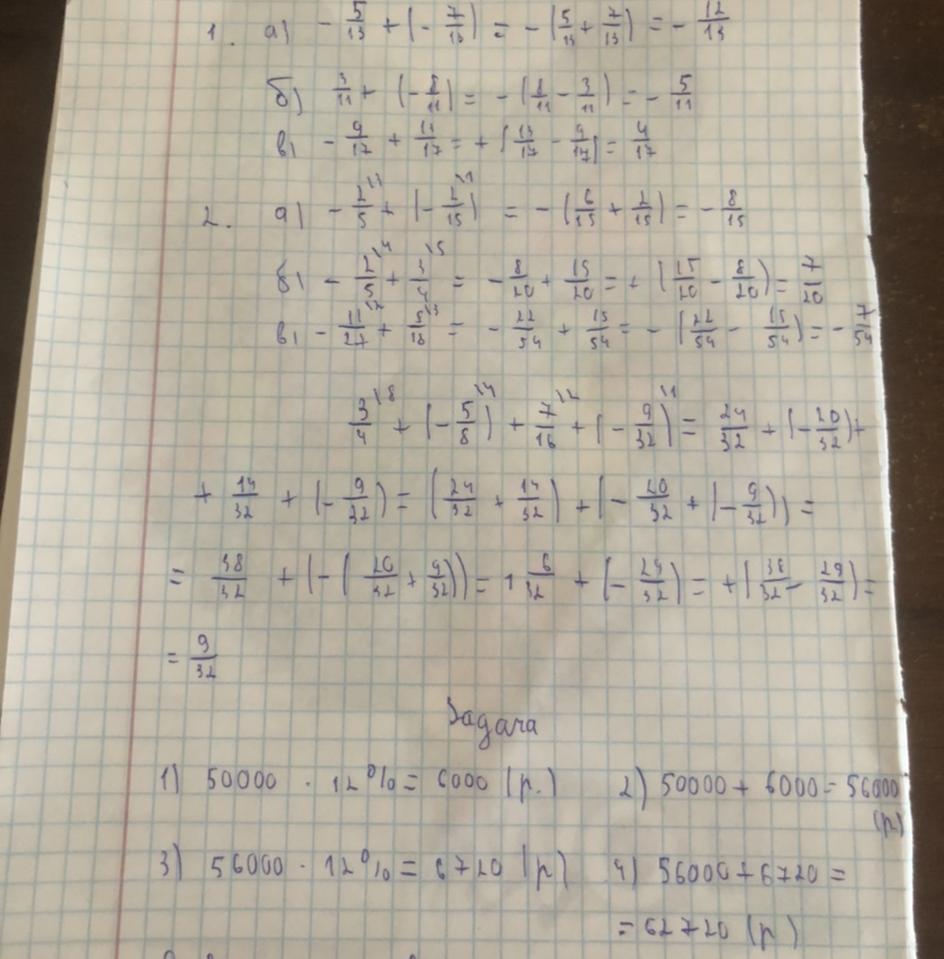 1. а) - 5/13 + (- 7/13) = - (5/13 + 7/13) = - 12/13
б) 3/11 + (- 8/11) = - (8/11 - 3/11) = - 5/11
в) - 9/17 + 11/17 = + (13/17 - 9/17) = 4/17
2. а) - 2/5 \3 + (- 2/15 \1) = - (6/15 + 2/15) = - 8/15
б) - 2/5 \4 + 3/4 \5 = - 8/20 + 15/20 = + (15/20 - 8/20) = 7/20
в) - 11/27 \2 + 5/18 \3 = - 22/54 + 15/54 = - (22/54 - 15/54) = - 7/54
3/4 \8 + (- 5/8 \4) + 7/16 \2 + (- 9/32 \1) = 24/32 + (- 20/32) +
+ 14/32 + (- 9/32) = (24/32 + 14/32) + (- 20/32 + (- 9/32)) =
= 38/32 + (- (20/32 + 9/32)) = 1 6/32 + (- 29/32) = + (38/32 - 29/32) =
= 9/32
Задача
1) 50000 · 12% = 6000 (р.) 2) 50000 + 6000 = 56000
(р)
3) 56000 · 12% = 6720 (р) 4) 56000 + 6720 =
= 62720 (р)